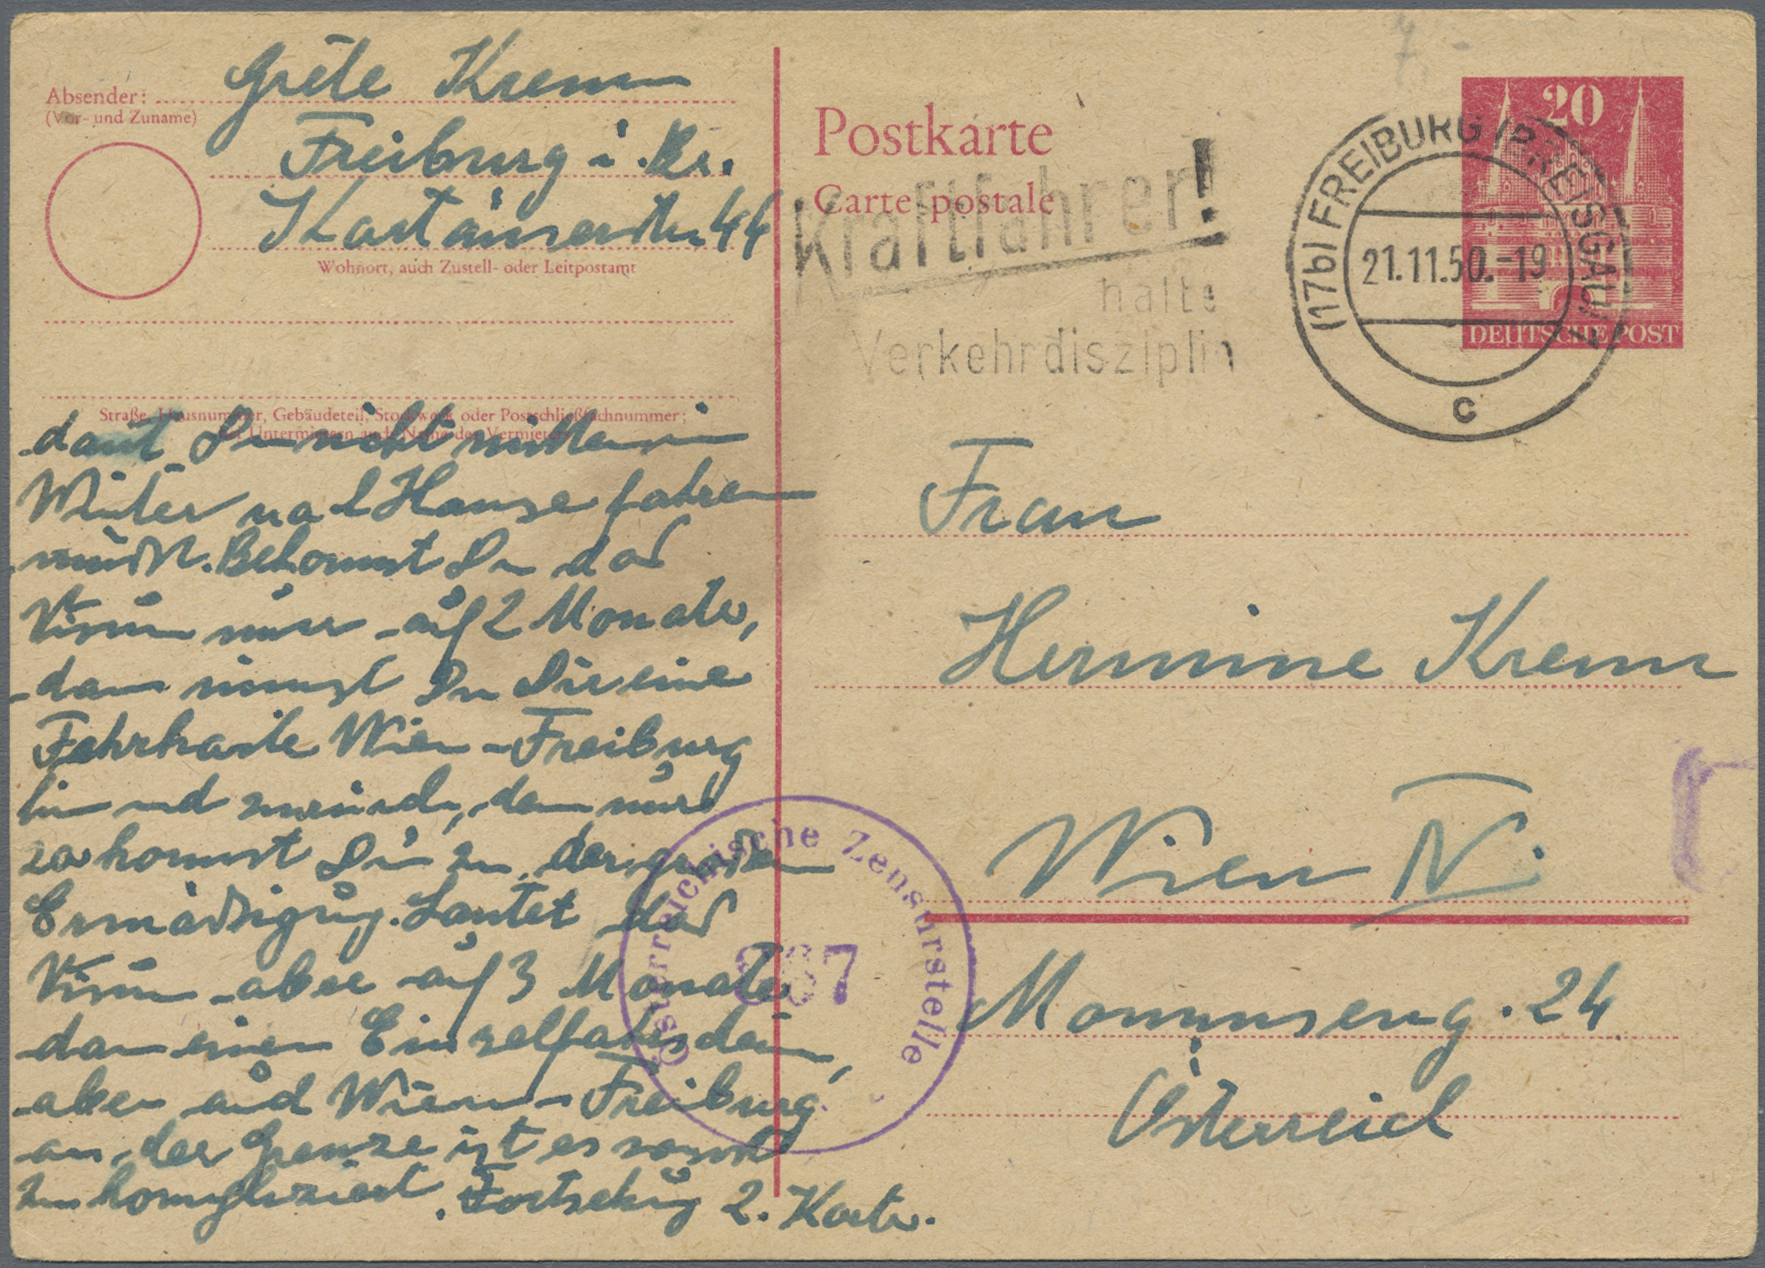 Absender:
(Vor- und Zuname)
Grete Krem
Freiburg i. Br.
44
Wohnort, auch Zustell- oder Leitpostamt
Straße, Hausnummer, Gebäudeteil, Stockwerk oder Postschließfachnummer;
bei Untermietern auch Name des Vermieters
damit Du nicht mitten im
Winter nach Hause fahren
mußt. Bekommst Du das
Visum nur auf 2 Monate,
dann nimmst Du Dir eine
Fahrkarte Wien - Freiburg
hin und zurück, denn nur
so kommst Du zu der großen
Ermäßigung. Lautet das
Visum aber auf 3 Monate
dann einen Einzelfahrschein,
aber auch Wien - Freiburg
an der Grenze ist es sonst
zu kompliziert. Fortsetzung 2. Karte.
Postkarte
Carte postale
Kraftfahrer!
halte
Verkehrdisziplin
20
DEUTSCHE POST
(17b) FREIBURG (BREISGAU) 7
21.11.50.-19
c
Frau
Hermine Krem
Wien IV.
Mommseng. 24
Österreich
Österreichische Zensurstelle